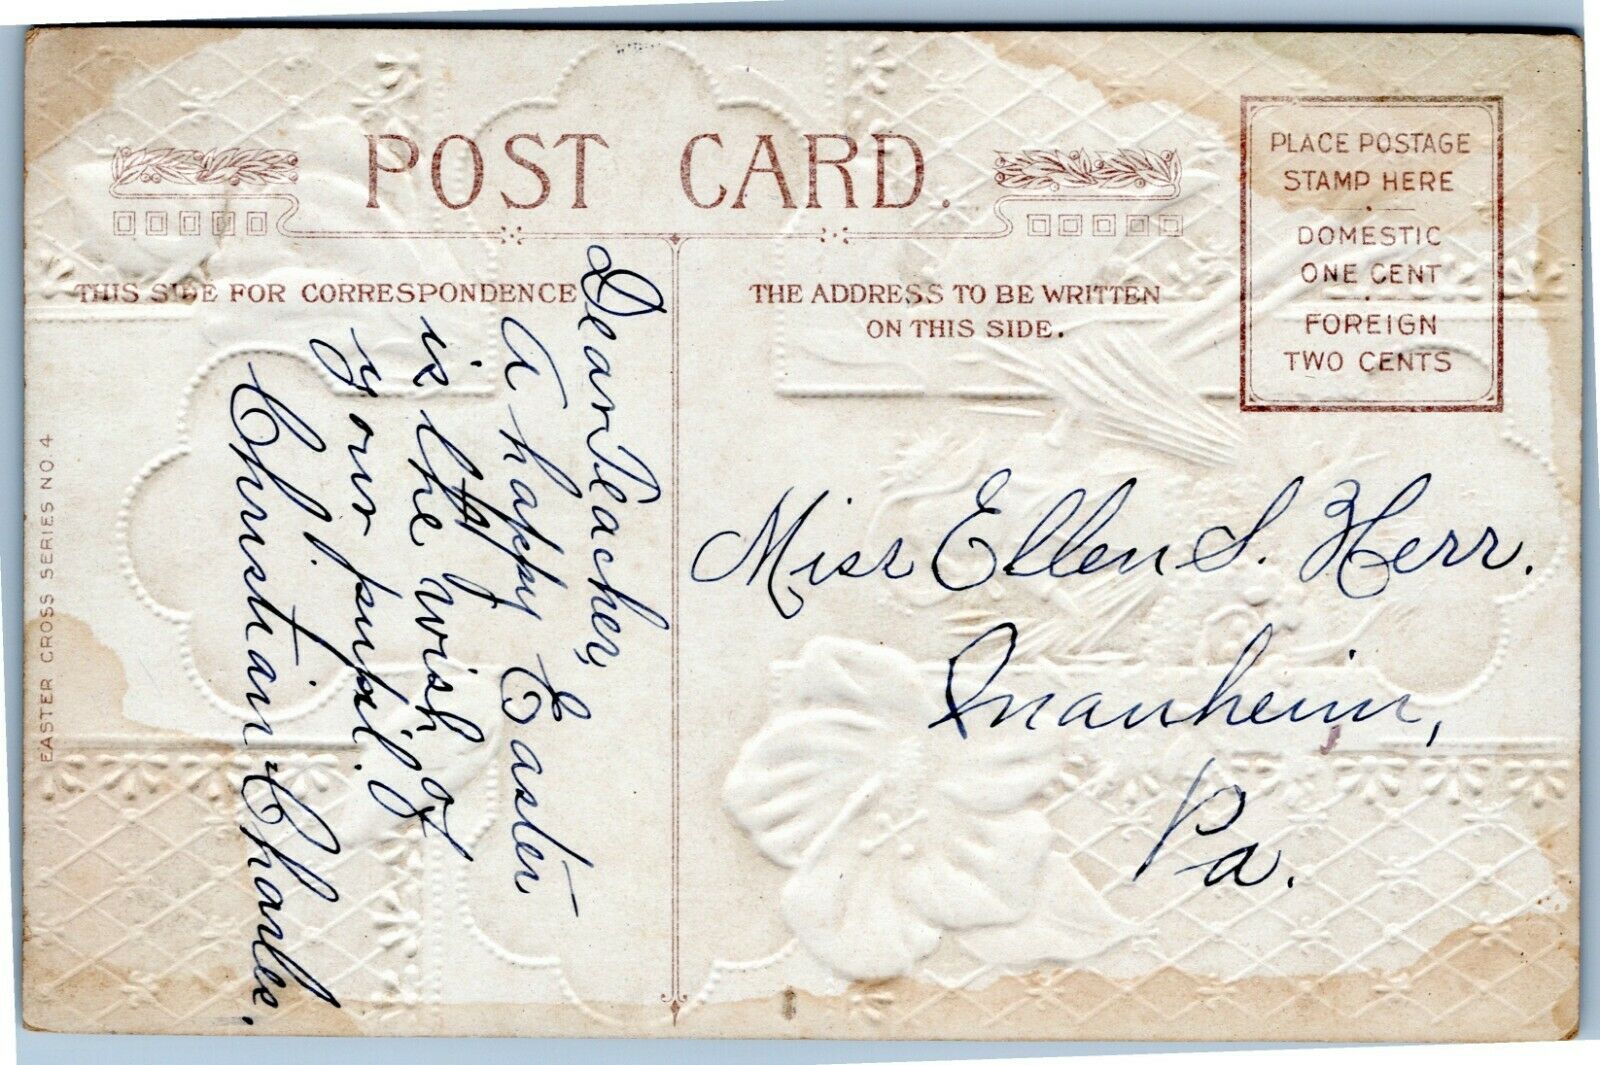 POST CARD.
THIS SIDE FOR CORRESPONDENCE
THE ADDRESS TO BE WRITTEN
ON THIS SIDE.
PLACE POSTAGE
STAMP HERE
DOMESTIC
ONE CENT
FOREIGN
TWO CENTS
Dear Teacher,
A happy Easter
is the wish of
your pupil.
Christian Charles.
Miss Ellen S. Herr.
Manheim,
Pa.
EASTER CROSS SERIES NO. 4